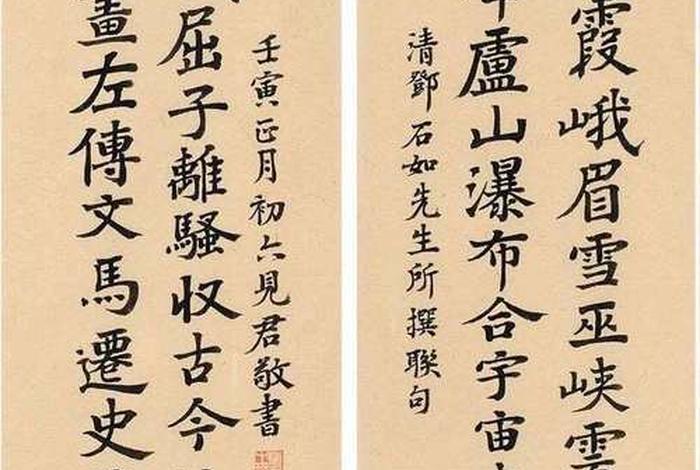 霞峨眉雪巫峡雲
盧山瀑布合宇宙
清鄧石如先生所撰聯句
畫左傳文馬遷史
屈子離騷収古今
壬寅正月初六見君敬書